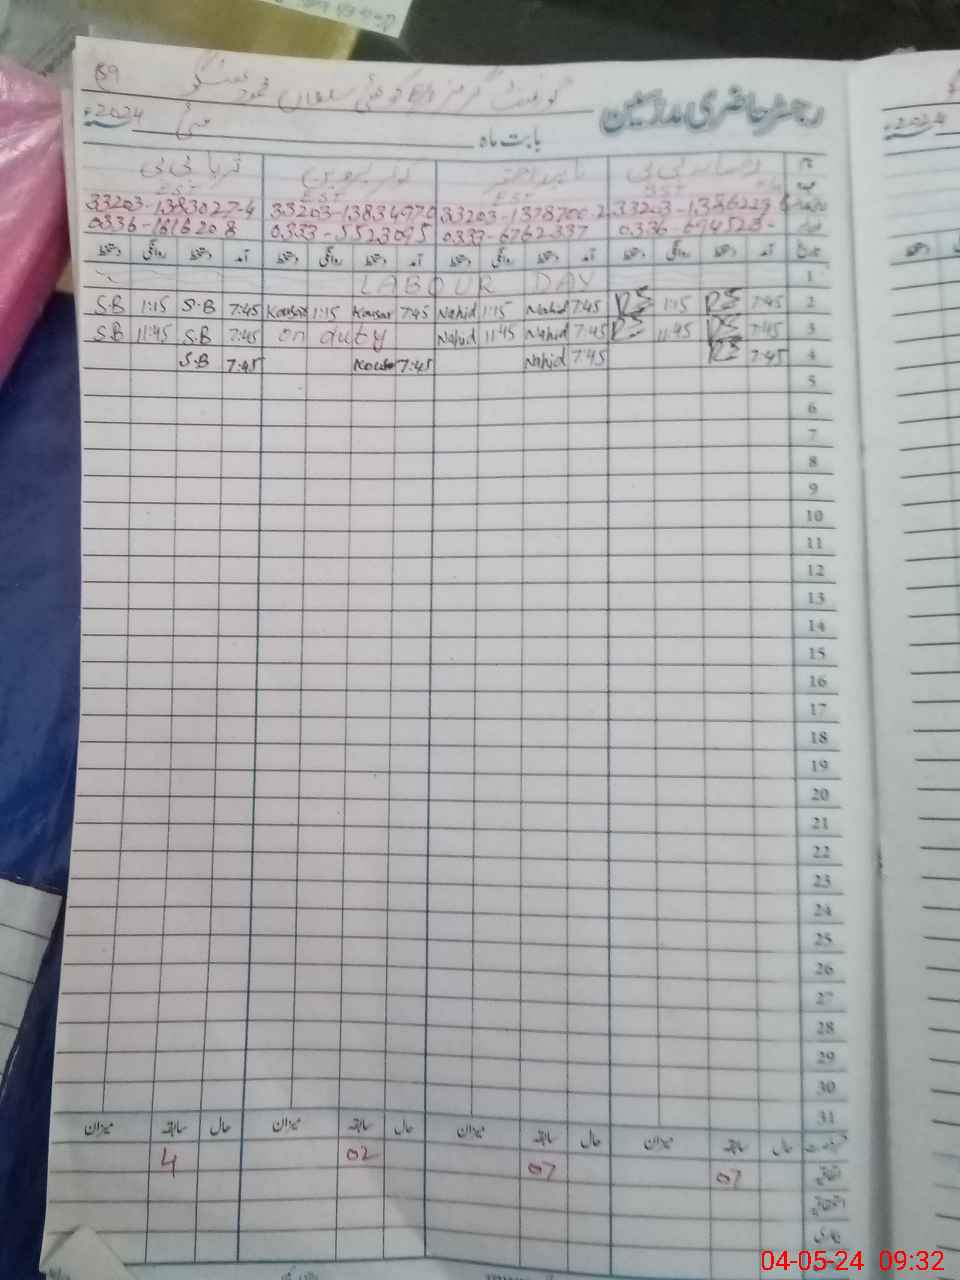 89
رجسٹر حاضری مدرسین
بابت ماہ مئی 2024ء
ثریا بی بی
EST EST EST
33203-1383027-4 33203-1383497 33203-1378700-2 33203-1386229
0336-1616208 0333-5523095 0333-6762337 0336-694523
آمد دستخط روانگی دستخط آمد دستخط روانگی دستخط آمد دستخط روانگی دستخط آمد دستخط روانگی دستخط
LABOUR DAY 1
S.B 1:15 S.B 7:45 Kousar 1:15 Kousar 7:45 Nahid 1:15 Nahid 7:45 RS 1:15 RS 7:45 2
S.B 11:45 S.B 7:45 on duty Nahid 11:45 Nahid 7:45 RS 11:45 RS 7:45 3
S.B 7:45 Kousar 7:45 Nahid 7:45 RS 7:45 4
5
6
7
8
9
10
11
12
13
14
15
16
17
18
19
20
21
22
23
24
25
26
27
28
29
30
31
حال سابقہ میزان حال سابقہ میزان حال سابقہ میزان حال سابقہ میزان
4 02 07 07
2024ء
04-05-24 09:32